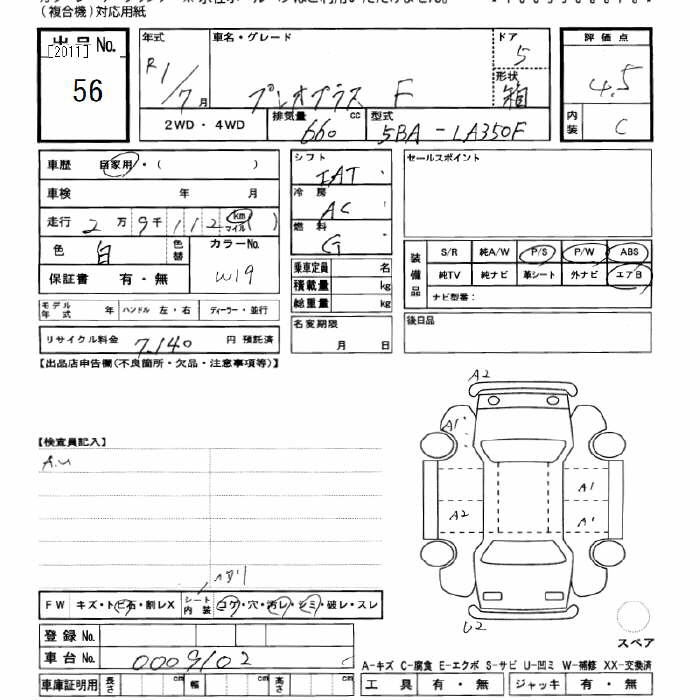 (複合機)対応用紙
出品No.
[2011]
56
年式
R1/7月
車名・グレード
プレオプラス F
ドア
5
形状
箱
評価点
4.5
内装
C
2WD・4WD
排気量
660 cc
型式
5BA-LA350F
車歴 自家用・( )
車検 年 月
走行 2万9千112 km マイル
色 白
色替
カラーNo.
W19
保証書 有・無
モデル年式 年 ハンドル 左・右 ディーラー・並行
リサイクル料金 7,140 円 預託済
シフト
IAT
冷房
AC
燃料
G
乗車定員 名
積載量 kg
総重量 kg
名変期限
月 日
セールスポイント
装備品
S/R 純A/W P/S P/W ABS
純TV 純ナビ 革シート 外ナビ エアB
ナビ型番:
後日品
【出品店申告欄(不良箇所・欠品・注意事項等)】
【検査員記入】
A2
A1
A1
A2
A1
U2
FW キズ・トビ石・割レX
シート内装
コゲ・穴・汚レ・シミ・破レ・スレ
登録No.
車台No. 0009102
車庫証明用 長さ cm 幅 cm 高さ cm
スペア
A-キズ C-腐食 E-エクボ S-サビ U-凹ミ W-補修 XX-交換済
工具 有・無 ジャッキ 有・無